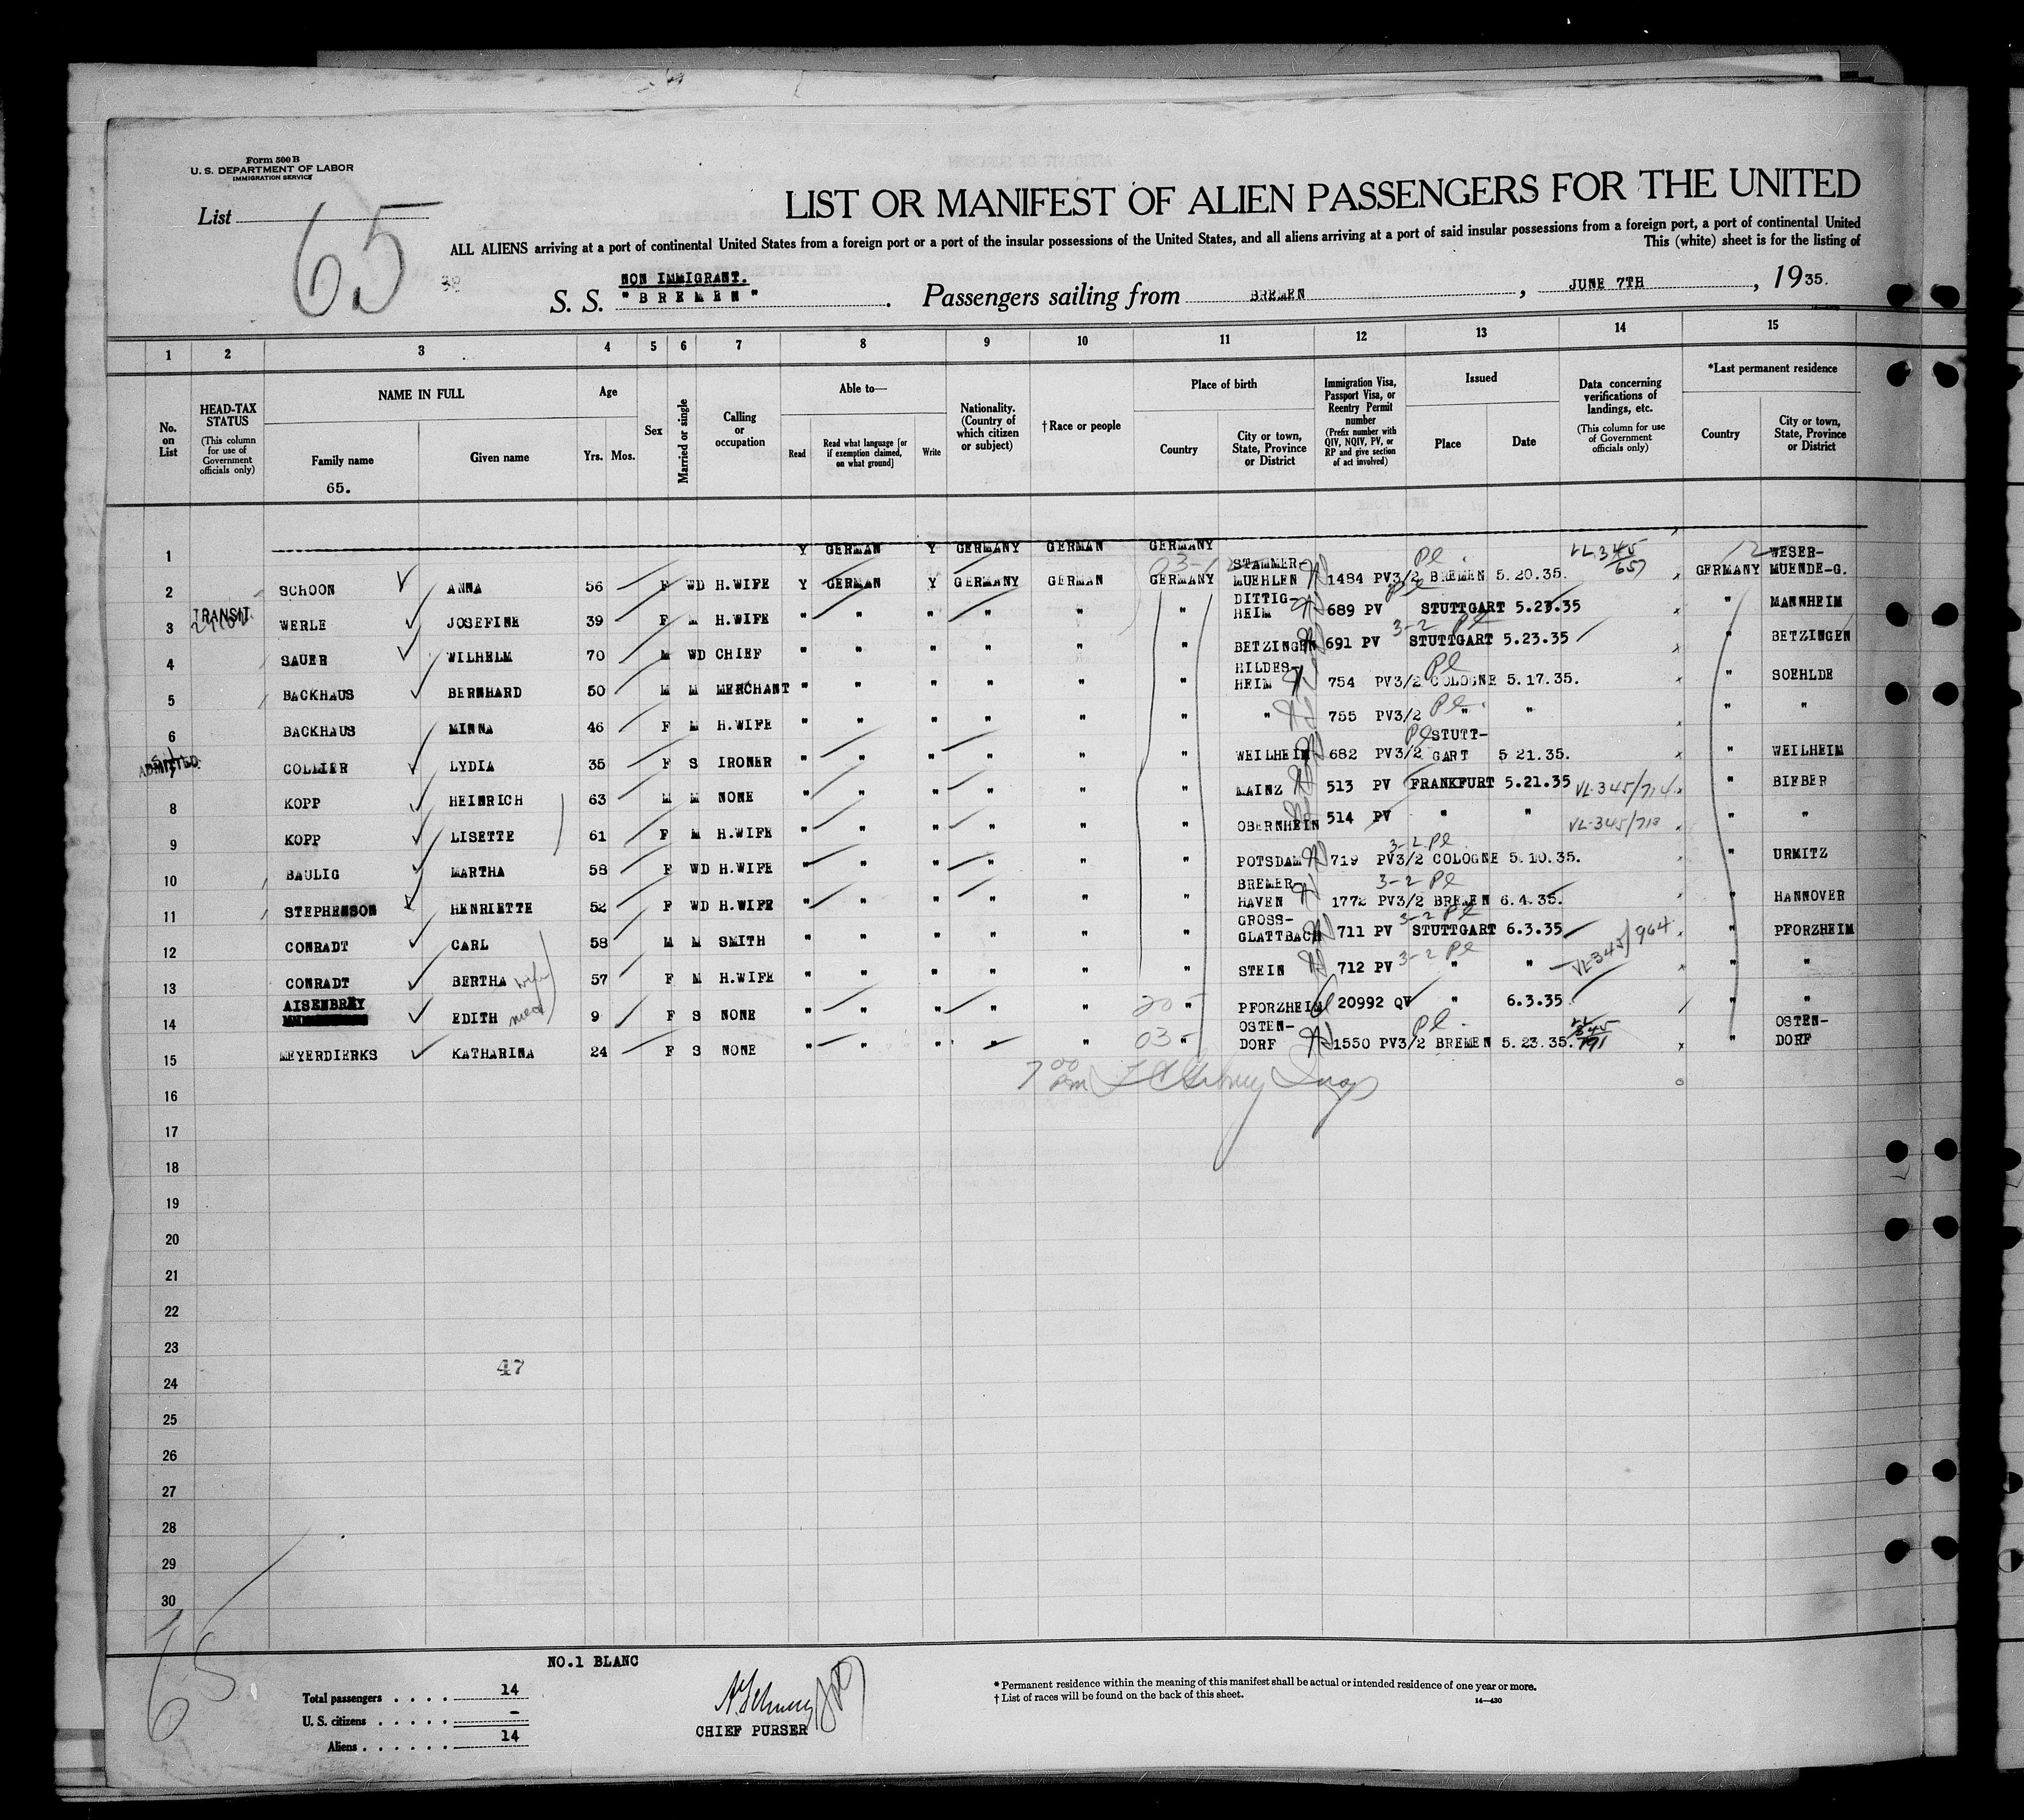 Form 500 B
U. S. DEPARTMENT OF LABOR
IMMIGRATION SERVICE
List 65
LIST OR MANIFEST OF ALIEN PASSENGERS FOR THE UNITED
ALL ALIENS arriving at a port of continental United States from a foreign port or a port of the insular possessions of the United States, and all aliens arriving at a port of said insular possessions from a foreign port, a port of continental United
This (white) sheet is for the listing of
NON IMMIGRANT.
S. S. "BREMEN". Passengers sailing from BREMEN, JUNE 7TH, 1935.
1 2 3 4 5 6 7 8 9 10 11 12 13 14 15
No. on List
HEAD-TAX STATUS (This column for use of Government officials only)
NAME IN FULL
Family name
Given name
65.
Age
Yrs. Mos.
Sex
Married or single
Calling or occupation
Able to—
Read
Read what language [or if exemption claimed, on what ground]
Write
Nationality. (Country of which citizen or subject)
† Race or people
Place of birth
Country
City or town, State, Province or District
Immigration Visa, Passport Visa, or Reentry Permit number (Prefix number with QIV, NQIV, PV, or RP and give section of act involved)
Issued
Place
Date
Data concerning verifications of landings, etc. (This column for use of Government officials only)
*Last permanent residence
Country
City or town, State, Province or District
1 Y GERMAN Y GERMANY GERMAN GERMANY
2 SCHOON ANNA 56 F WD H.WIFE Y GERMAN Y GERMANY GERMAN GERMANY STAMMER-MUEHLEN 1484 PV3/2 BREMEN 5.20.35. GERMANY WESER-MUENDE-G.
TRANSIT
3 WERLE JOSEFINE 39 F M H.WIFE " " " " " " DITTIG-HEIM 689 PV STUTTGART 5.23.35 " MANNHEIM
4 SAUER WILHELM 70 M WD CHIEF " " " " " " BETZINGEN 691 PV 3-2 Pl STUTTGART 5.23.35 " BETZINGEN
5 BACKHAUS BERNHARD 50 M M MERCHANT " " " " " " HILDES-HEIM 754 PV3/2 COLOGNE 5.17.35. " SOEHLDE
6 BACKHAUS MINNA 46 F M H.WIFE " " " " " " " 755 PV3/2 " " " "
ADMITTED
COLLIER LYDIA 35 F S IRONER " " " " " " WEILHEIM 682 PV3/2 STUTT-GART 5 21.35. " WEILHEIM
8 KOPP HEINRICH 63 M M NONE " " " " " " MAINZ 513 PV FRANKFURT 5.21.35 VL-345/714 " BIEBER
9 KOPP LISETTE 61 F M H.WIFE " " " " " " OBERNHEIN 514 PV " " VL-345/713 " "
10 BAULIG MARTHA 58 F WD H.WIFE " " " " " " POTSDAM 719 PV3/2 3-2 Pl COLOGNE 5.10.35. " URMITZ
11 STEPHENSON HENRIETTE 52 F WD H.WIFE " " " " " " BREMER-HAVEN 1772 PV3/2 3-2 Pl BREMEN 6.4.35. " HANNOVER
12 CONRADT CARL 58 M M SMITH " " " " " " GROSS-GLATTBACH 711 PV 3-2 Pl STUTTGART 6.3.35 " PFORZHEIM
13 CONRADT BERTHA wife 57 F M H.WIFE " " " " " " STEIN 712 PV 3-2 Pl " " VL-345/964 " "
14 AISENBREY EDITH niece 9 F S NONE " " " " " " PFORZHEIM 20992 QV " 6.3.35 " "
15 MEYERDIERKS KATHARINA 24 F S NONE " " " " " " OSTEN-DORF 1550 PV3/2 Pl BREMEN 5.23.35. " OSTEN-DORF
7 00 Pm
16
17
18
19
20
21
22
23
47
24
25
26
27
28
29
30
65
NO.1 BLANC
Total passengers 14
U. S. citizens -
Aliens 14
CHIEF PURSER
* Permanent residence within the meaning of this manifest shall be actual or intended residence of one year or more.
† List of races will be found on the back of this sheet.
14—430